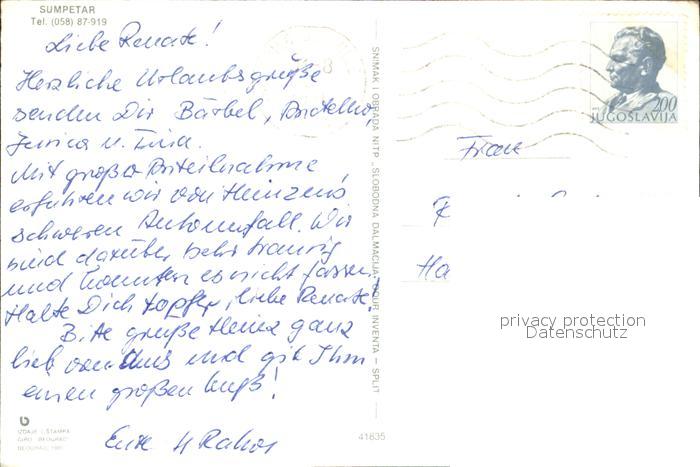 SUMPETAR
Tel. (058) 87-919
Liebe Renate!
Herzliche Urlaubsgrüße
senden Dir Bärbel,
Jessica u. Tina.
Mit großer Anteilnahme
erfuhren wir von Heinzens
schweren Autounfall. Wir
sind darüber sehr traurig
und konnten es nicht fassen!
Halte Dich tapfer, liebe Renate.
Bitte grüße Heinz ganz
lieb von uns und gib Ihm
einen großen Kuß!
Eure 4
SNIMAK I OBRADA NITP - SLOBODNA DALMACIJA - TOUR INVENTA - SPLIT
IZDAJE I ŠTAMPA
GIRO "BEOGRAD"
41835
2.00
JUGOSLAVIJA
Frau
R
Ha
privacy protection
Datenschutz